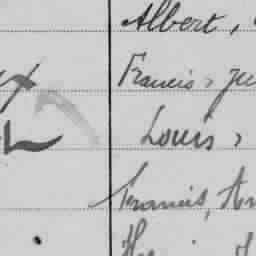 Albert,
Francis, Ju
Louis,
Francis, An